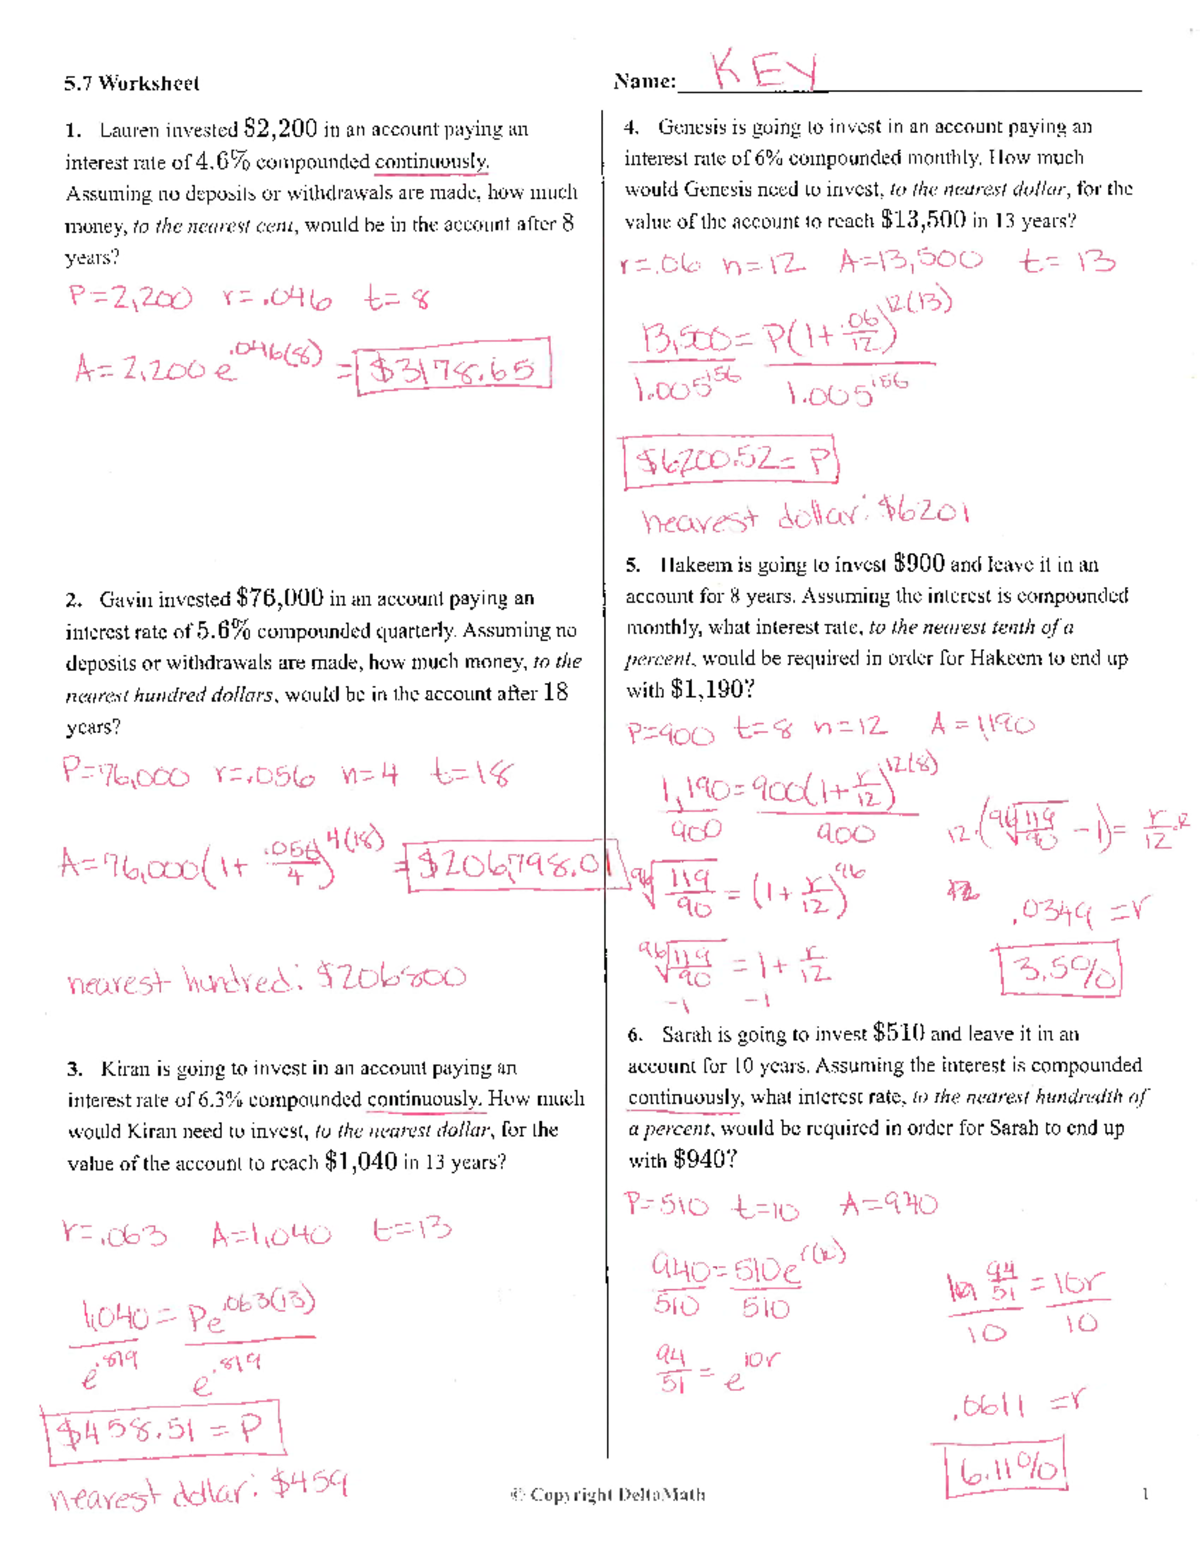 5.7 Worksheet
Name: KEY
1. Lauren invested $2,200 in an account paying an
interest rate of 4.6% compounded continuously.
Assuming no deposits or withdrawals are made, how much
money, to the nearest cent, would be in the account after 8
years?
P=2,200 r=.046 t=8
A=2,200e^.046(8) = $3178.65
2. Gavin invested $76,000 in an account paying an
interest rate of 5.6% compounded quarterly. Assuming no
deposits or withdrawals are made, how much money, to the
nearest hundred dollars, would be in the account after 18
years?
P=76,000 r=.056 n=4 t=18
A=76,000(1+.056/4)^4(18) = $206,798.01
nearest hundred: $206800
3. Kiran is going to invest in an account paying an
interest rate of 6.3% compounded continuously. How much
would Kiran need to invest, to the nearest dollar, for the
value of the account to reach $1,040 in 13 years?
r=.063 A=1,040 t=13
1,040=Pe^.063(13)
e^.819 e^.819
$458.51=P
nearest dollar: $459
4. Genesis is going to invest in an account paying an
interest rate of 6% compounded monthly. How much
would Genesis need to invest, to the nearest dollar, for the
value of the account to reach $13,500 in 13 years?
r=.06 n=12 A=13,500 t=13
13,500=P(1+.06/12)^12(13)
1.005^156 1.005^156
$6200.52=P
nearest dollar: $6201
5. Hakeem is going to invest $900 and leave it in an
account for 8 years. Assuming the interest is compounded
monthly, what interest rate, to the nearest tenth of a
percent, would be required in order for Hakeem to end up
with $1,190?
P=900 t=8 n=12 A=1,190
1,190=900(1+r/12)^12(8)
900 900
96√119/90 = (1+r/12)^96
96√119/90 = 1+r/12
-1 -1
12·(96√119/90 -1)=r/12·12
.0349=r
3.5%
6. Sarah is going to invest $510 and leave it in an
account for 10 years. Assuming the interest is compounded
continuously, what interest rate, to the nearest hundredth of
a percent, would be required in order for Sarah to end up
with $940?
P=510 t=10 A=940
940=510e^r(10)
510 510
94/51=e^10r
ln 94/51=10r
10 10
.0611=r
6.11%
© Copyright DeltaMath
1